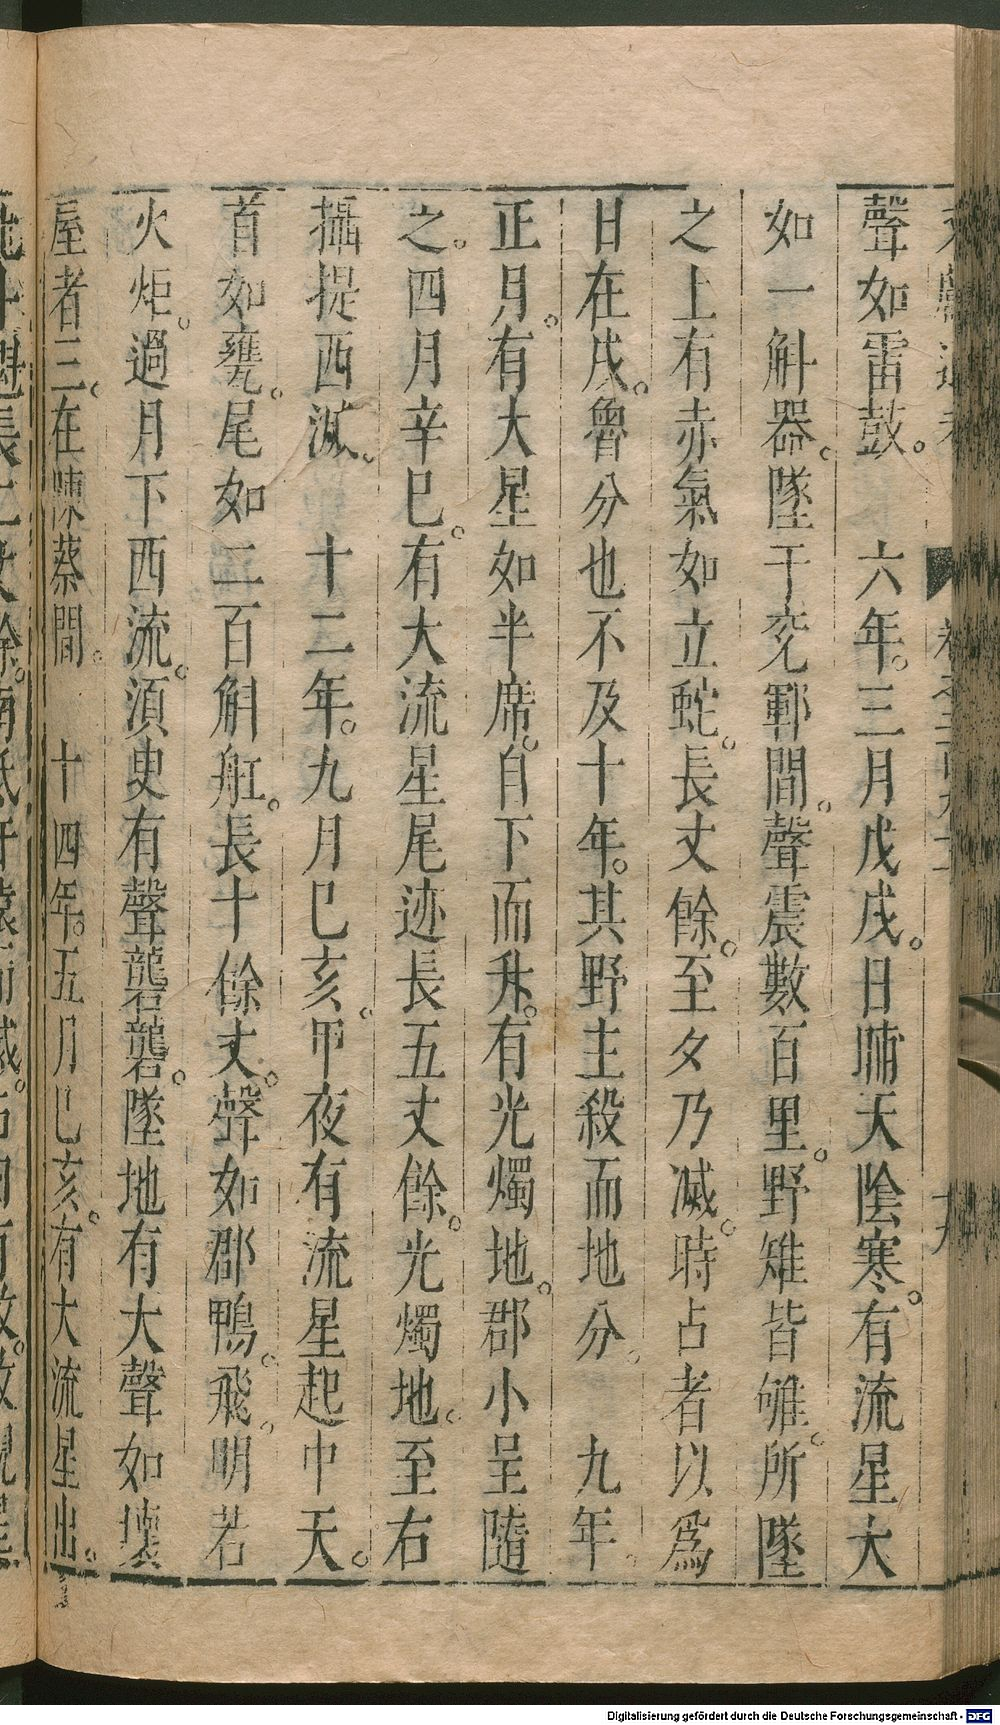 聲如雷鼓。　六年。三月戊戌。日晡天陰寒。有流星大
如一斛器。墜于兖鄆間。聲震數百里。野雉皆雊。所墜
之上有赤氣如立蛇。長丈餘。至夕乃滅。時占者以為
日在戌。魯分也不及十年。其野主殺而地分。　九年。
正月。有大星如半席。自下而升。有光燭地。郡小星隨
之。四月辛巳。有大流星尾迹長五丈餘。光燭地。至右
攝提西滅。　十二年。九月巳亥。甲夜有流星起中天。
首如甕。尾如二百斛舡。長十餘丈。聲如郡鴨。飛。明若
火炬。過月下西流。須臾有聲礱礱。墜地有大聲如壞
屋者三。在陳蔡間。　十四年。五月巳亥。有大流星出。
Digitalisierung gefördert durch die Deutsche Forschungsgemeinschaft - DFG